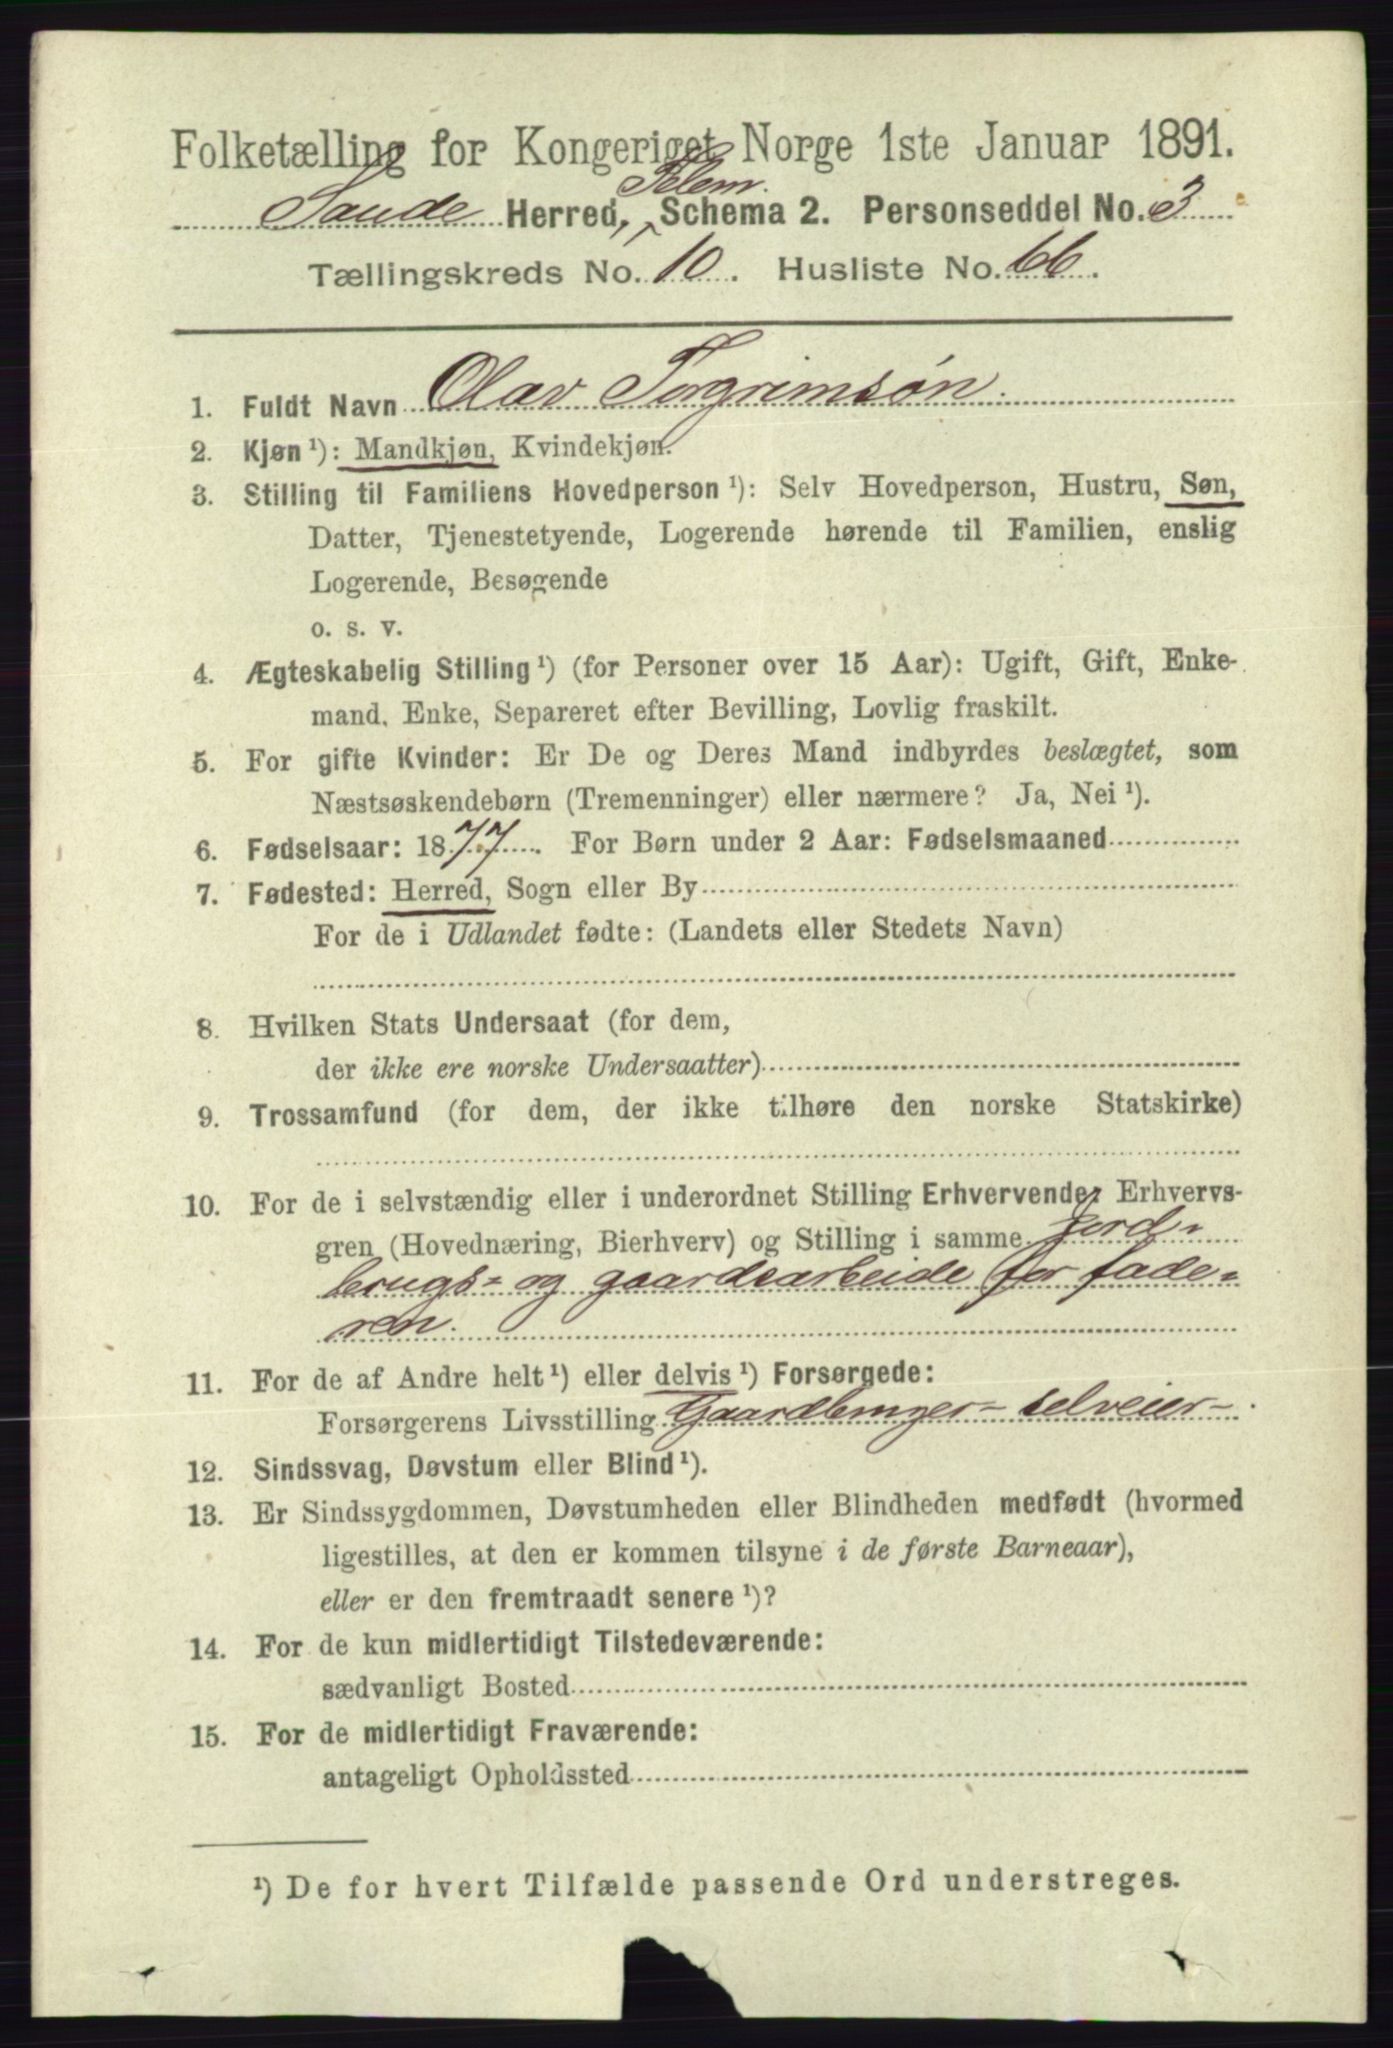 Folketælling for Kongeriget Norge 1ste Januar 1891.
Telem.
Saude Herred, Schema 2. Personseddel No. 3
Tællingskreds No. 10. Husliste No. 66.
1. Fuldt Navn Olav Torgrimsøn.
2. Kjøn ¹): Mandkjøn, Kvindekjøn.
3. Stilling til Familiens Hovedperson ¹): Selv Hovedperson, Hustru, Søn,
Datter, Tjenestetyende, Logerende hørende til Familien, enslig
Logerende, Besøgende
o. s. v.
4. Ægteskabelig Stilling ¹) (for Personer over 15 Aar): Ugift, Gift, Enke-
mand, Enke, Separeret efter Bevilling, Lovlig fraskilt.
5. For gifte Kvinder: Er De og Deres Mand indbyrdes beslægtet, som
Næstsøskendebørn (Tremenninger) eller nærmere? Ja, Nei ¹).
6. Fødselsaar: 1877. For Børn under 2 Aar: Fødselsmaaned
7. Fødested: Herred, Sogn eller By
For de i Udlandet fødte: (Landets eller Stedets Navn)
8. Hvilken Stats Undersaat (for dem,
der ikke ere norske Undersaatter)
9. Trossamfund (for dem, der ikke tilhøre den norske Statskirke)
10. For de i selvstændig eller i underordnet Stilling Erhvervende: Erhvervs-
gren (Hovednæring, Bierhverv) og Stilling i samme Jord-
brugs- og gaardsarbeide for fade-
ren.
11. For de af Andre helt ¹) eller delvis ¹) Forsørgede:
Forsørgerens Livsstilling Gaardbruger - selveier -
12. Sindssvag, Døvstum eller Blind ¹).
13. Er Sindssygdommen, Døvstumheden eller Blindheden medfødt (hvormed
ligestilles, at den er kommen tilsyne i de første Barneaar),
eller er den fremtraadt senere ¹)?
14. For de kun midlertidigt Tilstedeværende:
sædvanligt Bosted
15. For de midlertidigt Fraværende:
antageligt Opholdssted
¹) De for hvert Tilfælde passende Ord understreges.